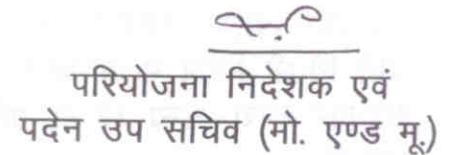 परियोजना निदेशक एवं
पदेन उप सचिव (मो. एण्ड मू.)